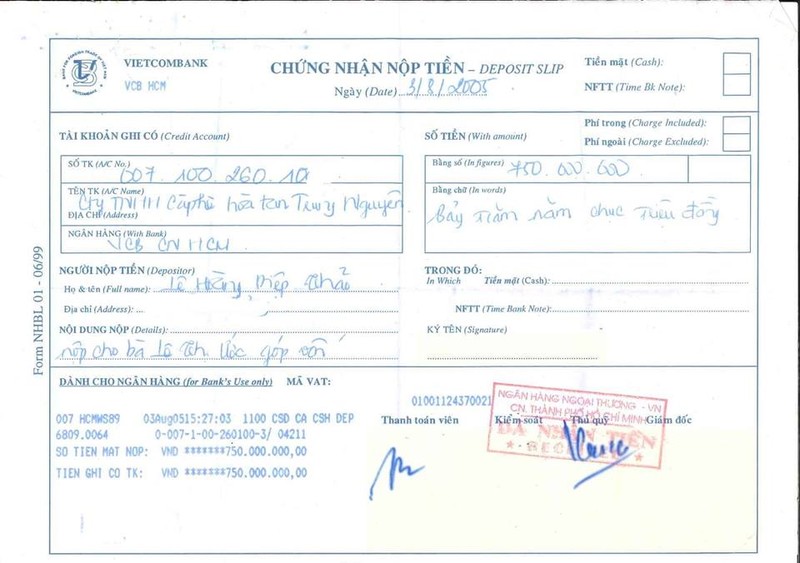 VIETCOMBANK
VCB HCM
CHỨNG NHẬN NỘP TIỀN – DEPOSIT SLIP
Ngày (Date) 3/8/2005
Tiền mặt (Cash):
NFTT (Time Bk Note):
Phí trong (Charge Included):
Phí ngoài (Charge Excluded):
TÀI KHOẢN GHI CÓ (Credit Account)
SỐ TIỀN (With amount)
SỐ TK (A/C No.) 007.100.260.10
TÊN TK (A/C Name)
Cty TNHH Càphê hòa tan Trung Nguyên
ĐỊA CHỈ (Address)
NGÂN HÀNG (With Bank)
VCB CN HCM
Bằng số (In figures) 750.000.000
Bằng chữ (In words)
Bảy trăm năm chục triệu đồng
NGƯỜI NỘP TIỀN (Depositor)
Họ & tên (Full name): Lê Hoàng Diệp Thảo
Địa chỉ (Address):
NỘI DUNG NỘP (Details):
nộp cho bà Lê Thị Ước góp vốn
TRONG ĐÓ:
In Which Tiền mặt (Cash):
NFTT (Time Bank Note):
KÝ TÊN (Signature)
Form NHBL 01 - 06/99
DÀNH CHO NGÂN HÀNG (for Bank's Use only) MÃ VAT:
01001124370021
007 HCMWS89 03Aug0515:27:03 1100 CSD CA CSH DEP
6809.0064 0-007-1-00-260100-3/ 04211
SO TIEN MAT NOP: VND *******750.000.000,00
TIEN GHI CO TK: VND *******750.000.000,00
Thanh toán viên Kiểm soát Thủ quỹ Giám đốc
NGÂN HÀNG NGOẠI THƯƠNG - VN
CN. THÀNH PHỐ HỒ CHÍ MINH
ĐÃ NHẬN TIỀN